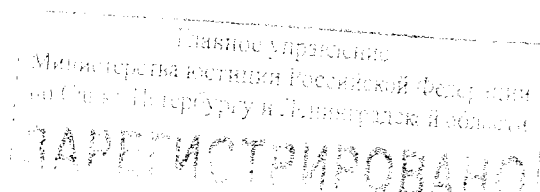 Главное управление
Министерства юстиции Российской Федерации
по Санкт-Петербургу и Ленинградской области
ЗАРЕГИСТРИРОВАНО